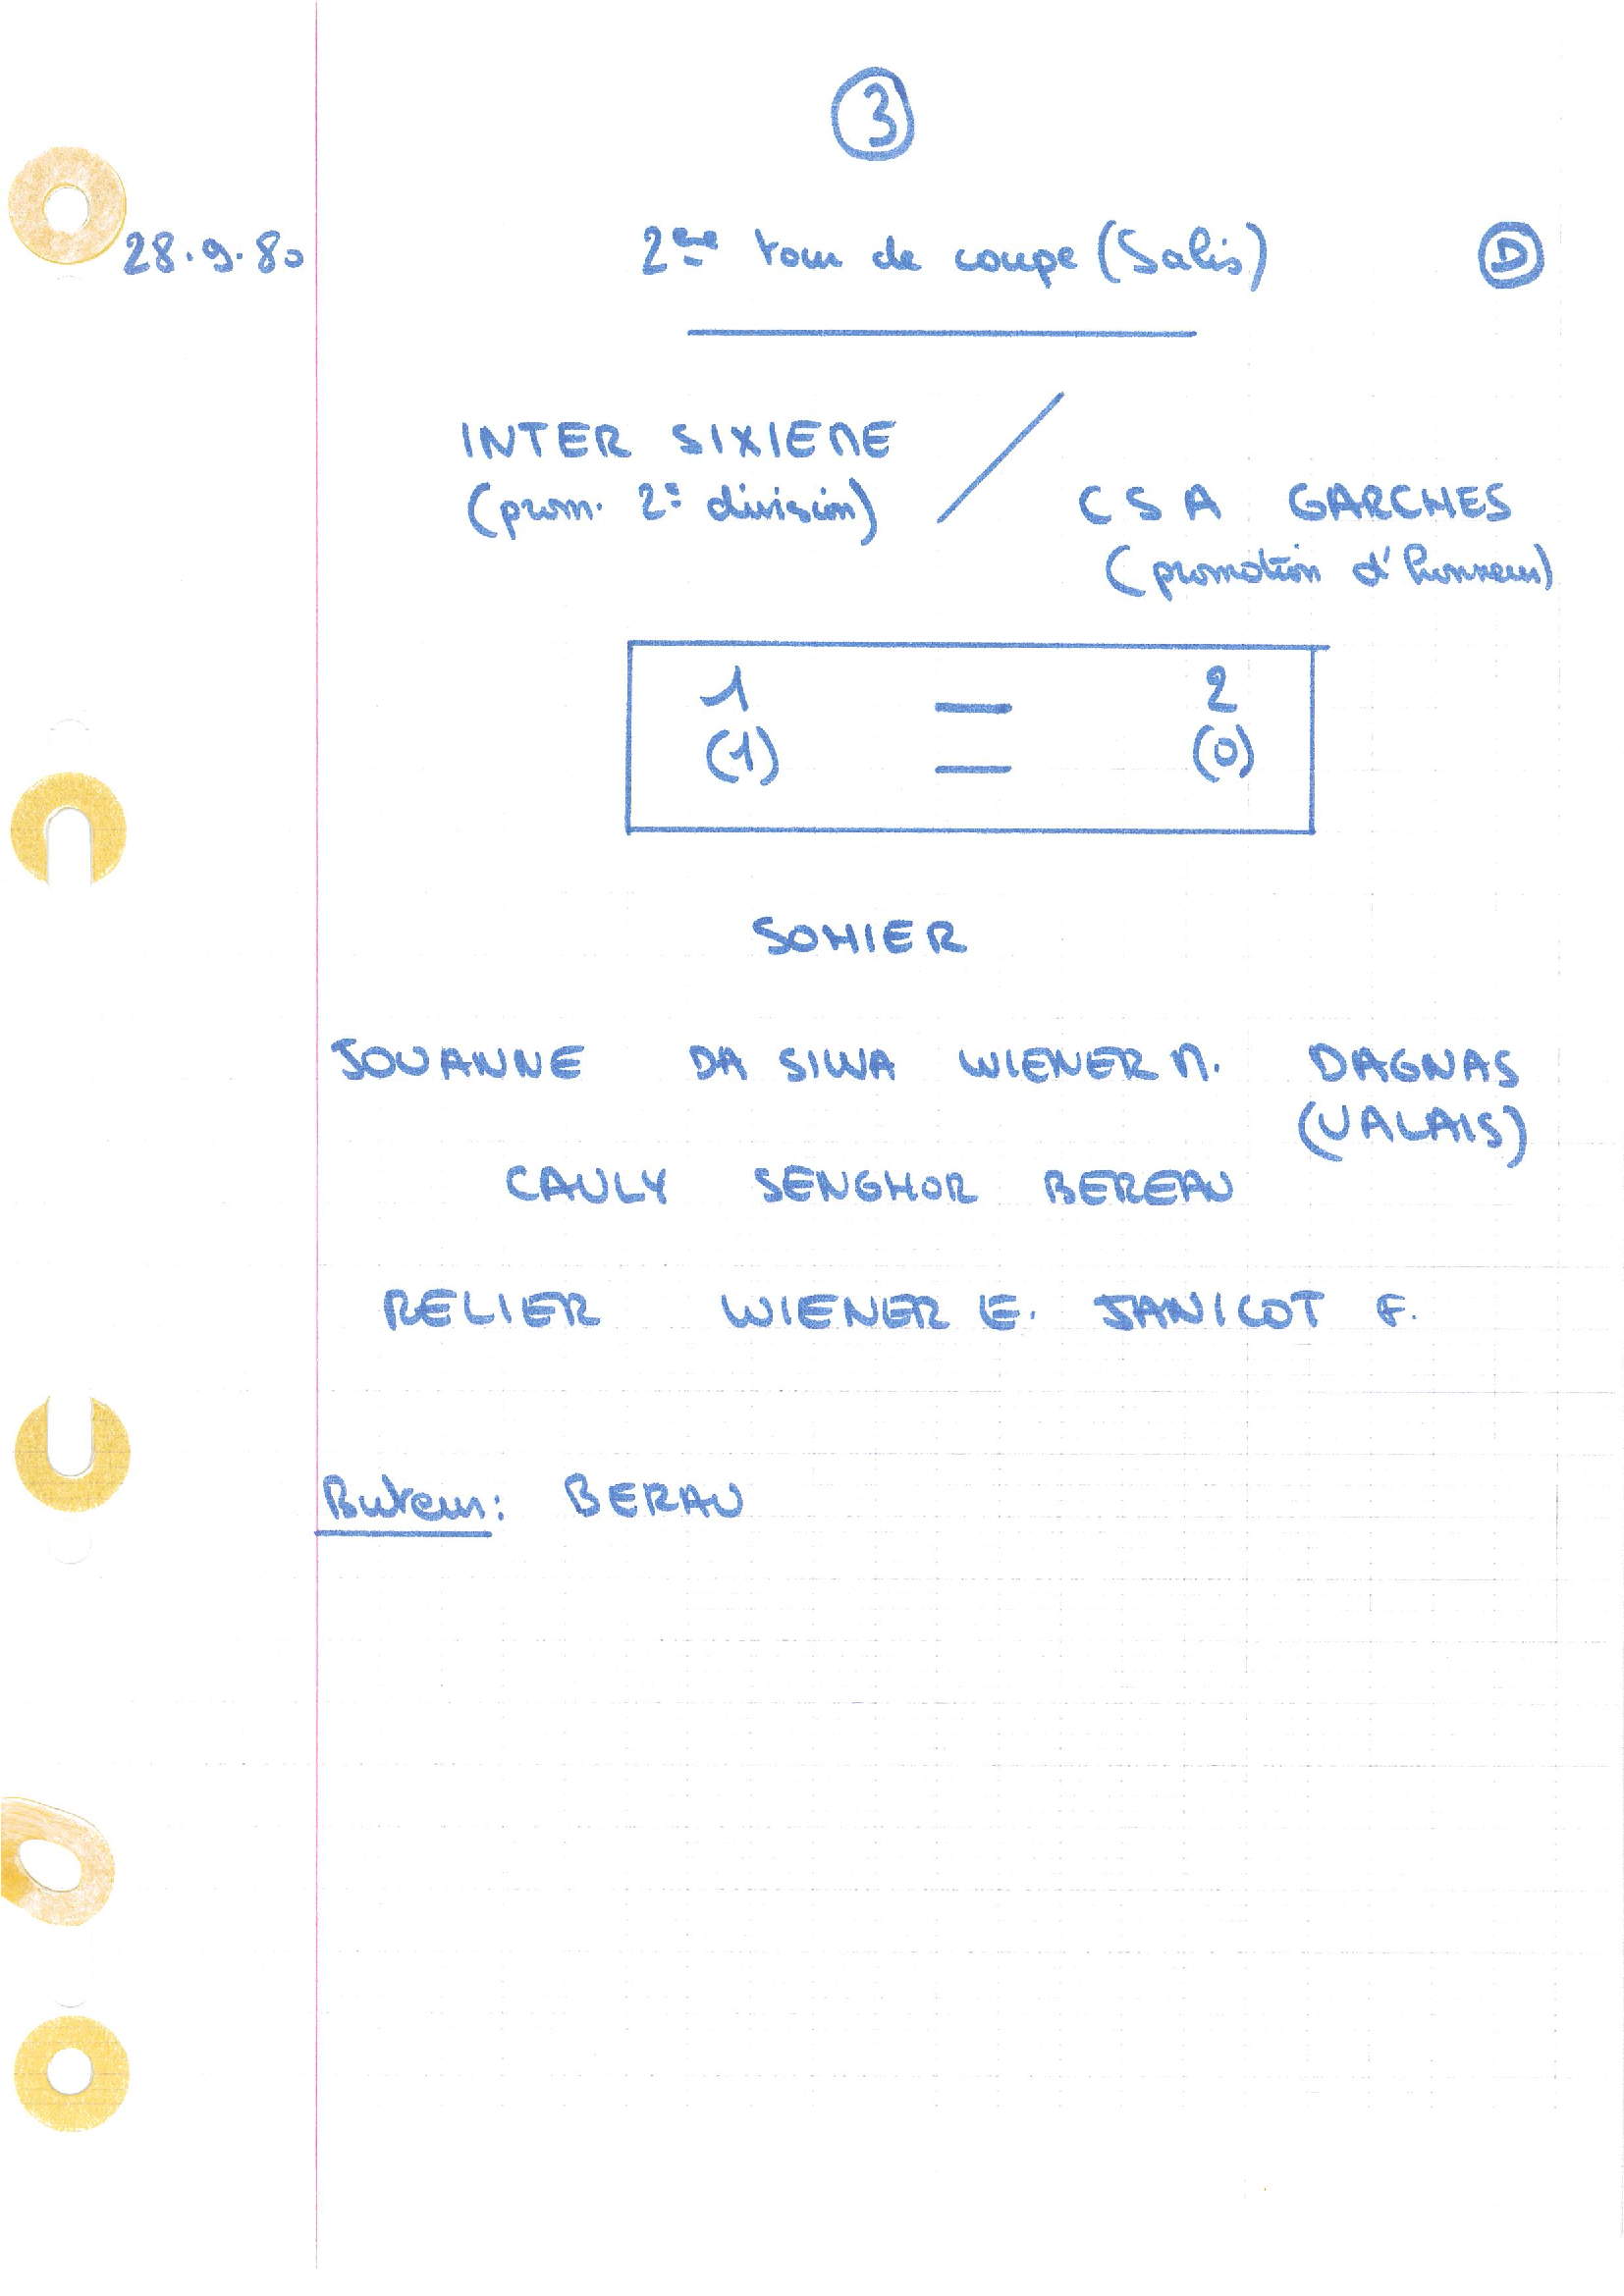 3
28.9.80 2ème tour de coupe (Salis) D
INTER SIXIEME
(prom. 2e division)
/
CSA GARCHES
(promotion d'honneur)
1 — 2
(1) — (0)
SOHIER
JOUANNE DA SILVA WIENER M. DAGNAS
(VALAIS)
CAULY SENGHOR BEREAU
RELIER WIENER E. JANICOT F.
Buteur: BERAU